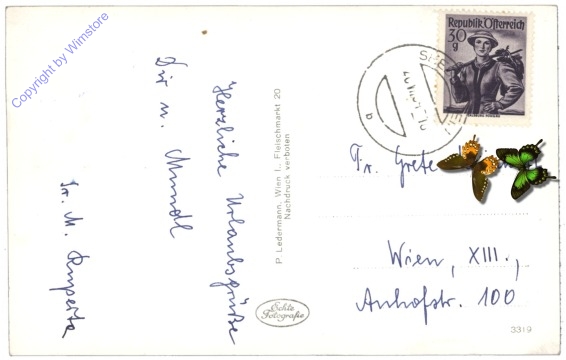 Copyright by Wimstore
Herzliche Urlaubsgrüße
Fr. M.
P. Ledermann, Wien I., Fleischmarkt 20
Nachdruck verboten
Echte
Fotografie
Republik Österreich
30
g
Fr. Grete
Wien, XIII.,
Anhofstr. 100
3319